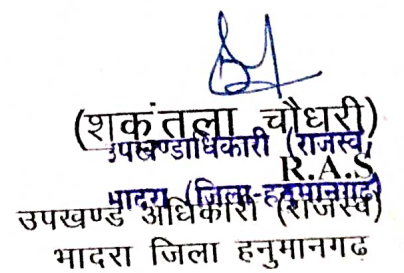 (शकुंतला चौधरी)
उपखण्डाधिकारी (राजस्व)
R.A.S
भादरा (जिला-हनुमानगढ़)
उपखण्ड अधिकारी (राजस्व)
भादरा जिला हनुमानगढ